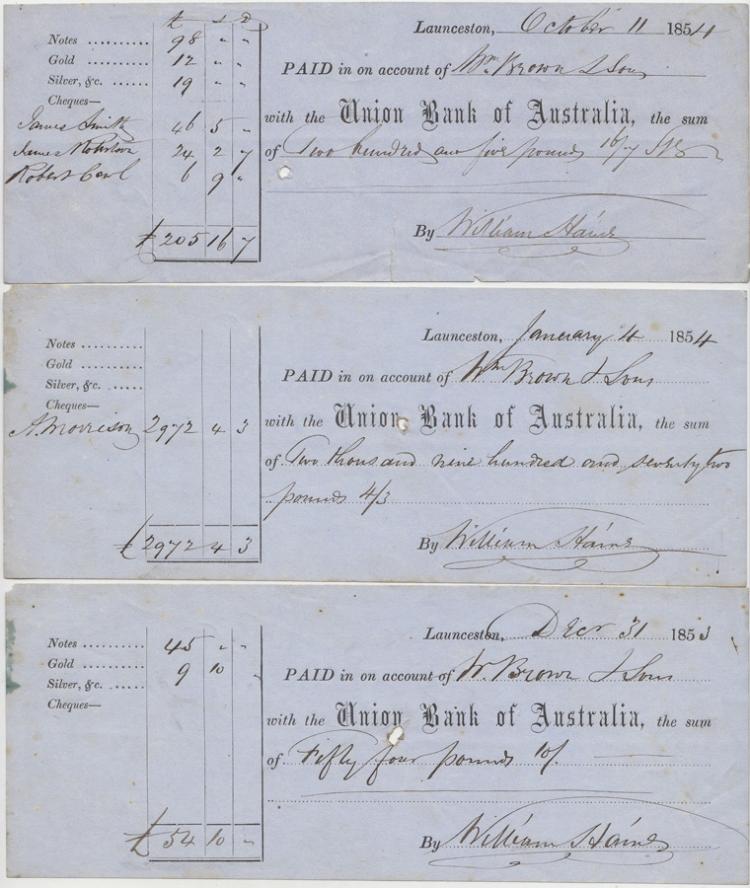 £ s D
Notes .......... 98 " "
Gold .......... 12 " "
Silver, &c. ...... 19 " "
Cheques—
James Smith 46 5 "
James 24 2 7
Robert 6 9 "
£ 205 16 7
Launceston, October 11 1854
PAID in on account of Wm Brown & Sons
with the Union Bank of Australia, the sum
of Two hundred and five pounds 16/7 Stg
By William Haines
Notes ..........
Gold ..........
Silver, &c. ......
Cheques—
A. Morrison 2972 4 3
£ 2972 4 3
Launceston, January 4 1854
PAID in on account of Wm Brown & Sons
with the Union Bank of Australia, the sum
of Two thousand nine hundred and seventy two
pounds 4/3
By William Haines
Notes .......... 45 " "
Gold .......... 9 10 "
Silver, &c. ......
Cheques—
£ 54 10 "
Launceston, Decr 31 1853
PAID in on account of W. Brown & Sons
with the Union Bank of Australia, the sum
of Fifty four pounds 10/.
By William Haines